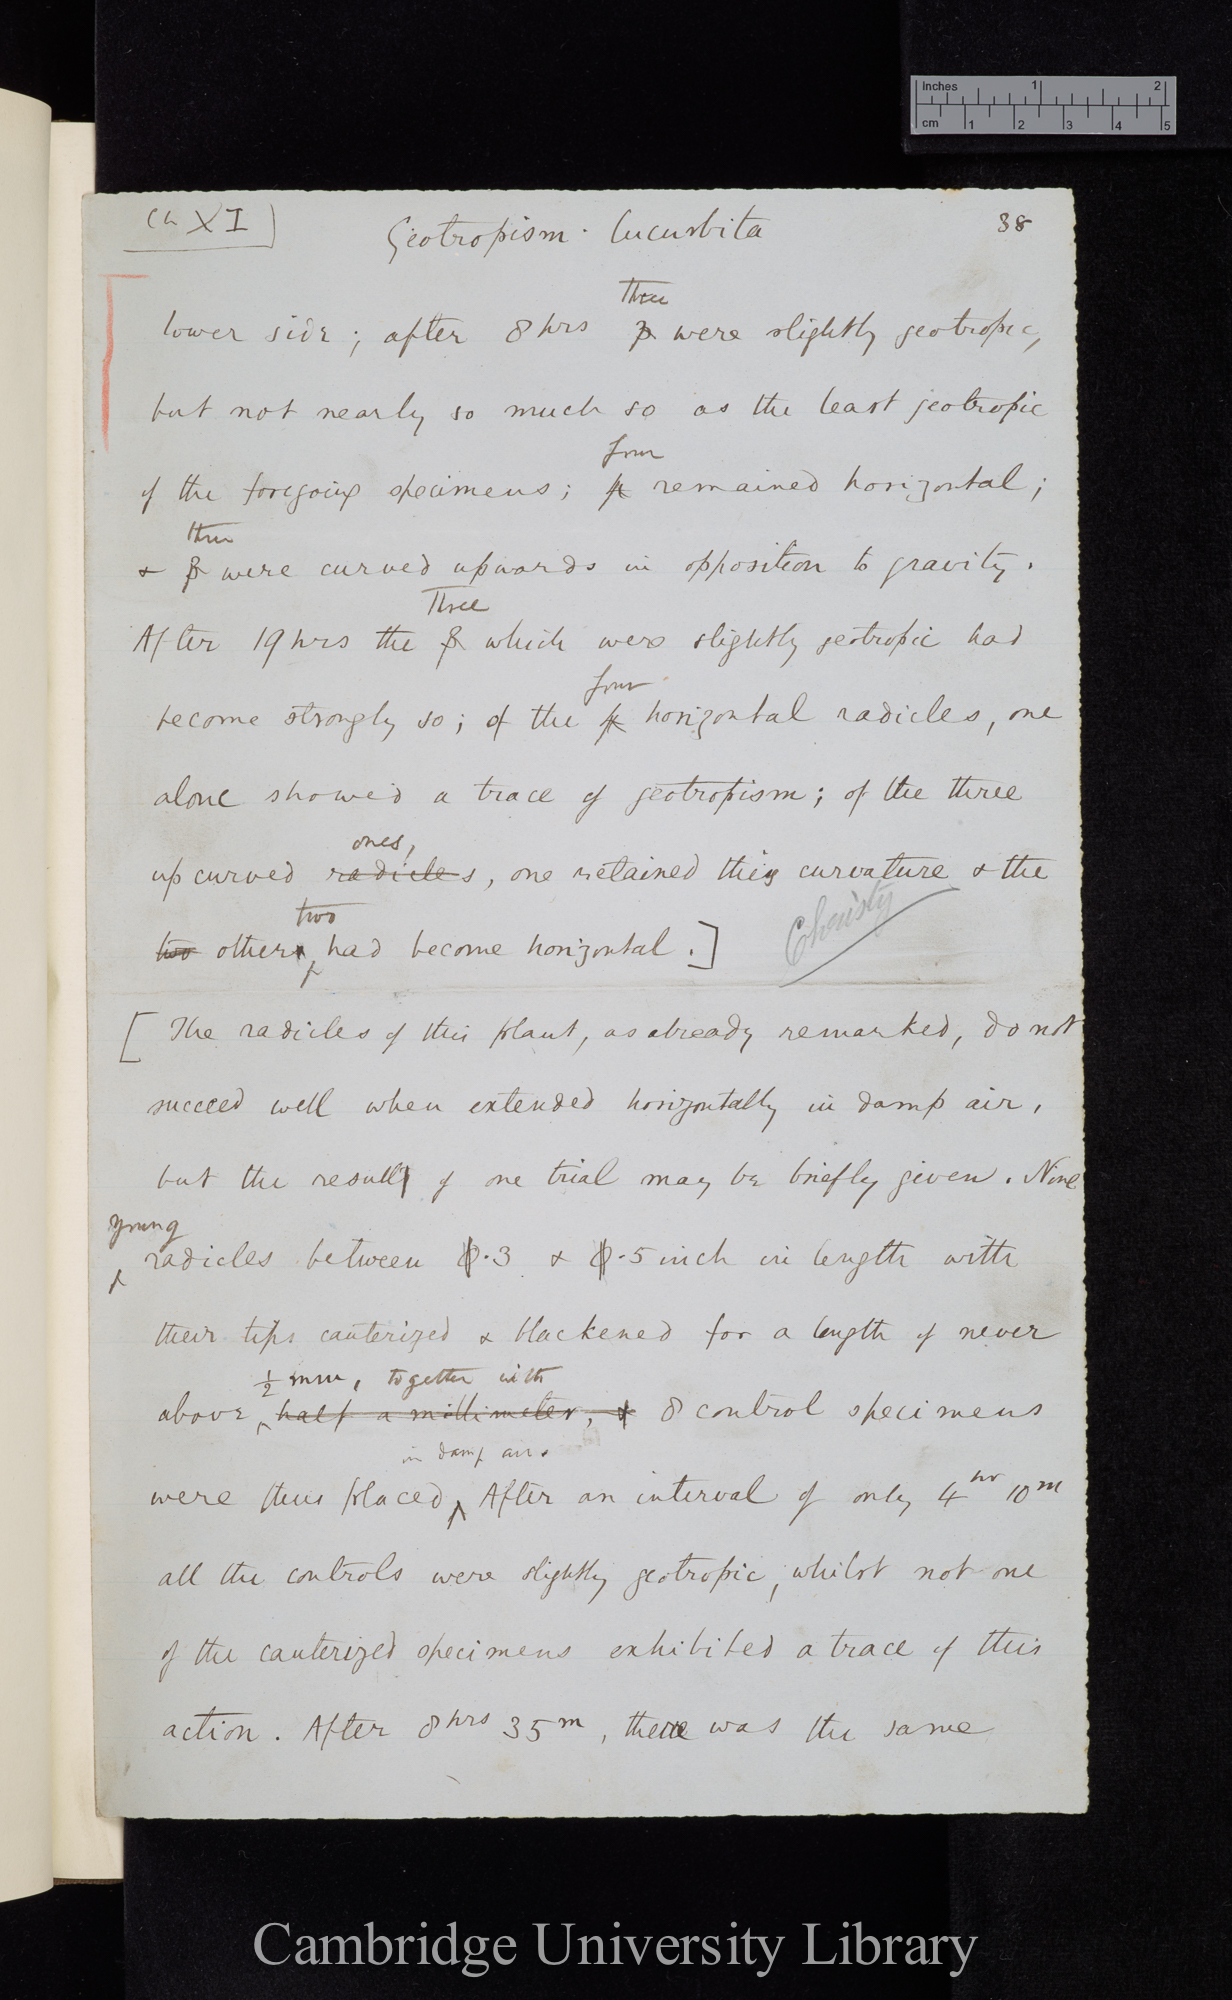 Inches 1 2
cm 1 2 3 4 5
Ch XI]
Geotropism. Cucurbita
38
three
lower side; after 8 hrs 3 were slightly geotropic,
but not nearly so much so as the least geotropic
four
of the foregoing specimens; 4 remained horizontal;
three
& 3 were curved upwards in opposition to gravity.
Three
After 19 hrs the 3 which were slightly geotropic had
four
become strongly so; of the 4 horizontal radicles, one
alone showed a trace of geotropism; of the three
ones,
up curved radicles, one retained this curvature & the
two
two others had become horizontal.]
Christy
[The radicles of this plant, as already remarked, do not
succeed well when extended horizontally in damp air,
but the result of one trial may be briefly given. Nine
young
radicles between 0.3 & 0.5 inch in length with
their tips cauterized & blackened for a length of never
½ mm, together with
above half a millimeter, & 8 control specimens
in damp air.
were thus placed After an interval of only 4 hr 10 m
all the controls were slightly geotropic, whilst not one
of the cauterized specimens exhibited a trace of this
action. After 8 hrs 35 m, there was the same
Cambridge University Library